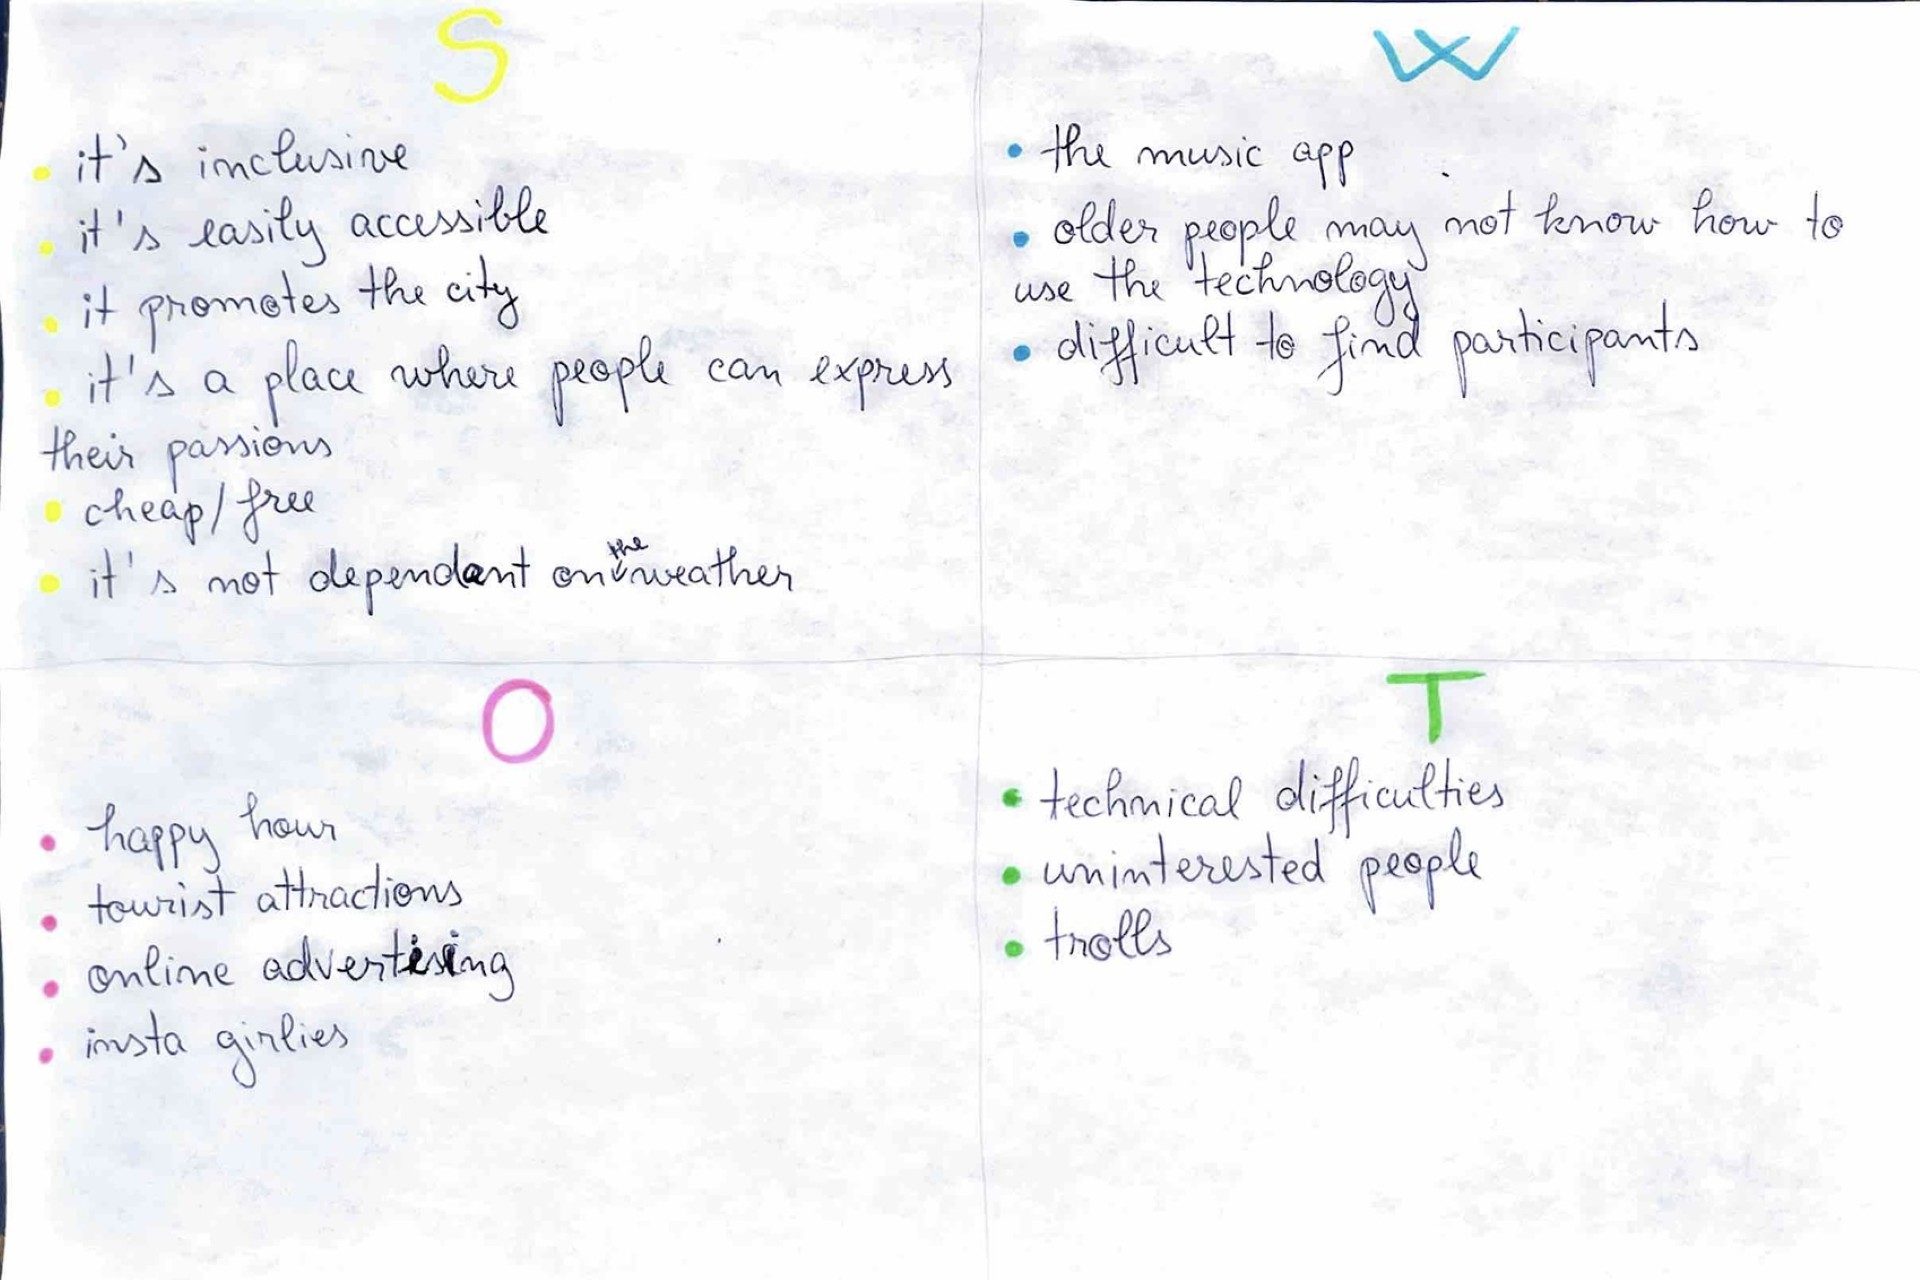 S
• it's inclusive
• it's easily accessible
• it promotes the city
• it's a place where people can express
their passions
• cheap/free
• it's not dependant on the weather
W
• the music app
• older people may not know how to
use the technology
• difficult to find participants
O
• happy hour
• tourist attractions
• online advertising
• insta girlies
T
• technical difficulties
• uninterested people
• trolls